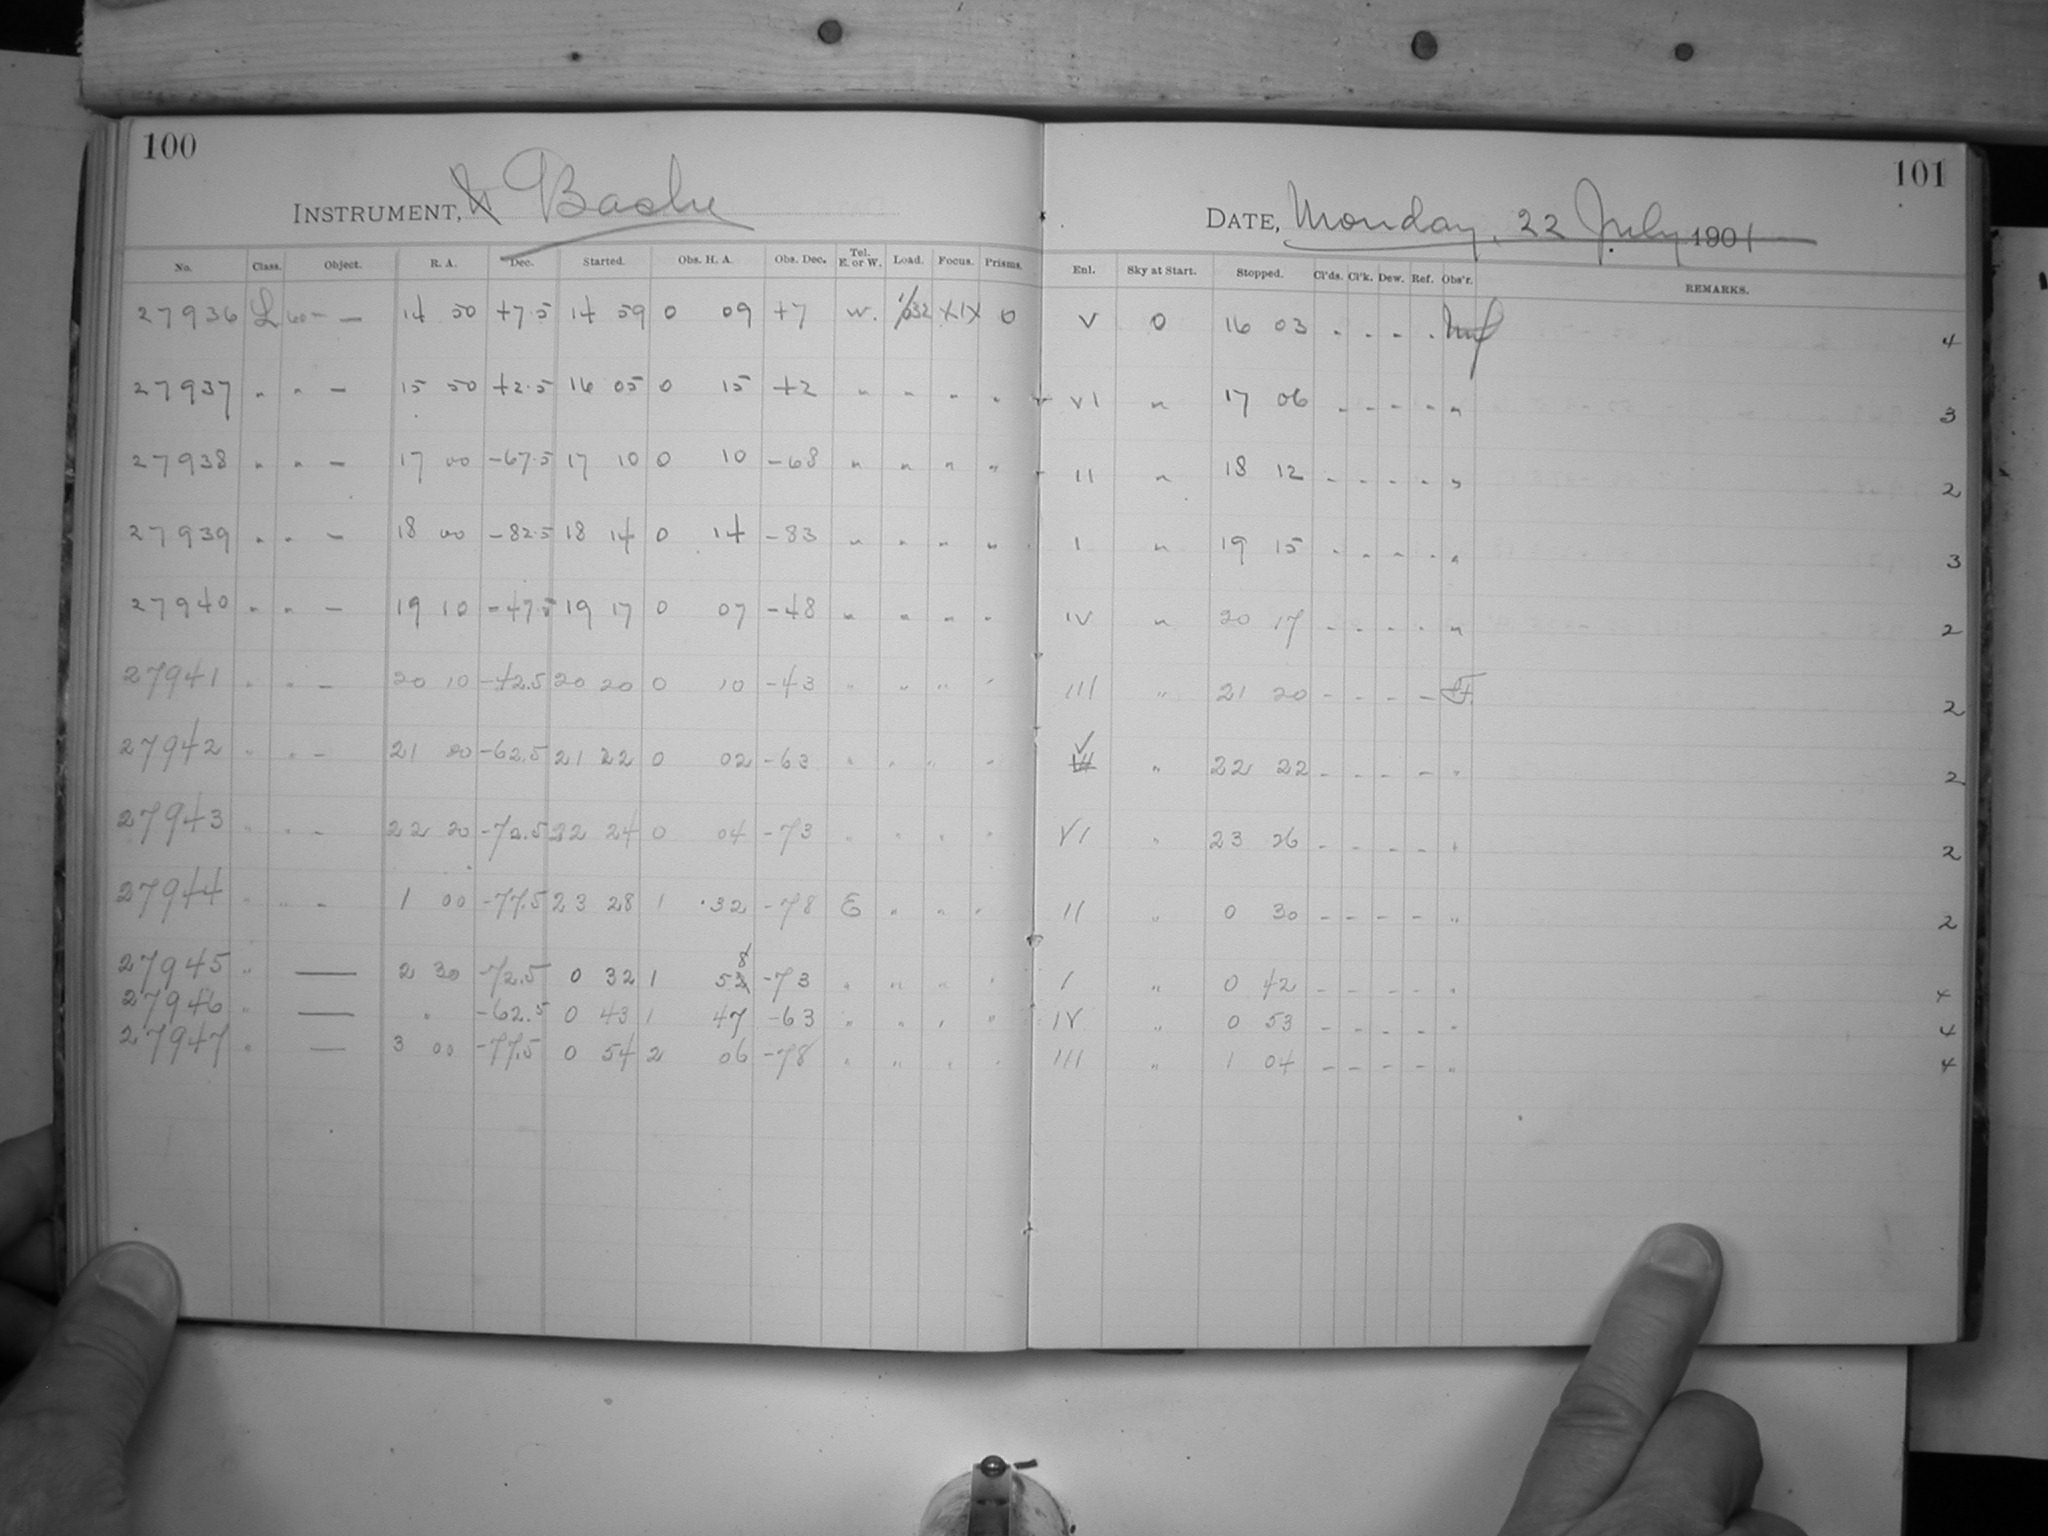 100
INSTRUMENT, Bache
No. Class. Object. R. A. Dec. Started. Obs. H. A. Obs. Dec. Tel. E. or W. Load. Focus. Prisms.
27936 L 60m — 14 50 +7.5 14 59 0 09 +7 W. 1/632 XIX 0
27937 " " — 15 50 +2.5 16 05 0 15 +2 " " " "
27938 " " — 17 00 -67.5 17 10 0 10 -68 " " " "
27939 " " — 18 00 -82.5 18 14 0 14 -83 " " " "
27940 " " — 19 10 -47.5 19 17 0 07 -48 " " " "
27941 " " — 20 10 -42.5 20 20 0 10 -43 " " " "
27942 " " — 21 20 -62.5 21 22 0 02 -63 " " " "
27943 " " — 22 20 -72.5 22 24 0 04 -73 " " " "
27944 " " — 1 00 -77.5 23 28 1 32 -78 E " " "
27945 " — 2 30 -72.5 0 32 1 58 -73 " " " "
27946 " — " -62.5 0 43 1 47 -63 " " " "
27947 " — 3 00 -77.5 0 54 2 06 -78 " " " "
101
DATE, Monday, 22 July 1901
Enl. Sky at Start. Stopped. Cl'ds. Cl'k. Dew. Ref. Obs'r. REMARKS.
V 0 16 03 - - - - 4
VI " 17 06 - - - - " 3
II " 18 12 - - - - " 2
I " 19 15 - - - - " 3
IV " 20 17 - - - - " 2
III " 21 20 - - - - 2
V " 22 22 - - - - " 2
VI " 23 26 - - - - " 2
II " 0 30 - - - - " 2
I " 0 42 - - - - " 4
IV " 0 53 - - - - " 4
III " 1 04 - - - - " 4